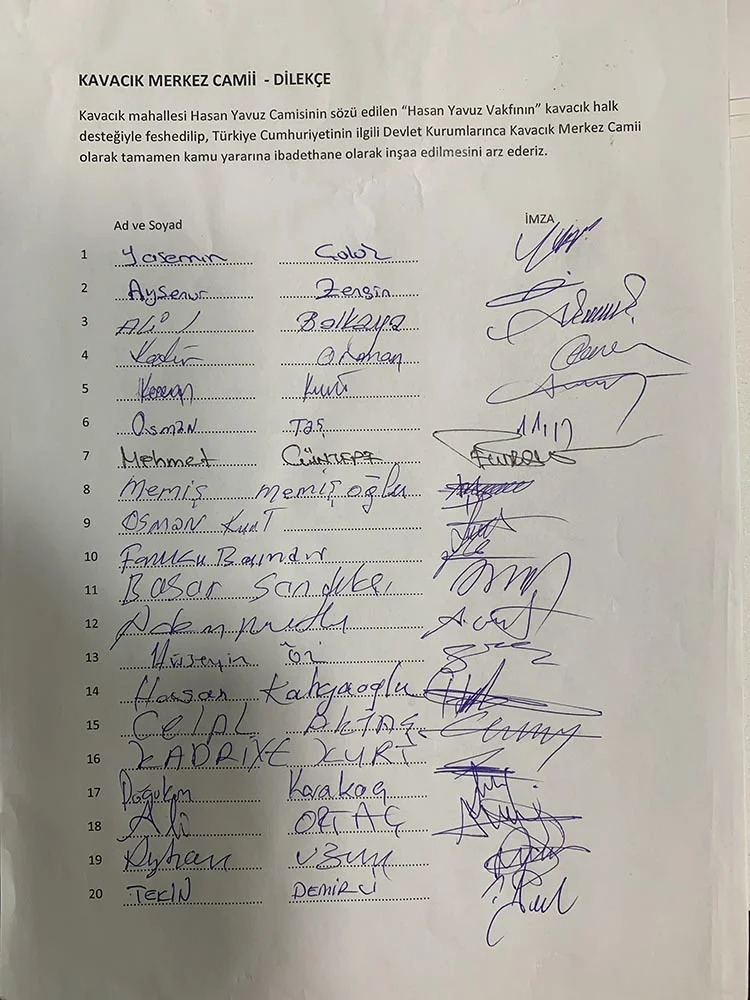 KAVACIK MERKEZ CAMİİ - DİLEKÇE
Kavacık mahallesi Hasan Yavuz Camisinin sözü edilen “Hasan Yavuz Vakfının” kavacık halk
desteğiyle feshedilip, Türkiye Cumhuriyetinin ilgili Devlet Kurumlarınca Kavacık Merkez Camii
olarak tamamen kamu yararına ibadethane olarak inşaa edilmesini arz ederiz.
Ad ve Soyad İMZA
1 Yasemin
2 Aysenur Zengin
3 Balkaya
4 Kadir
5 Kenan Kurt
6 Osman Taş
7 Mehmet GÜNTEPE
8 Memiş Memişoğlu
9 OSMAN KURT
10
11 Basar
12 Adem
13 Hüseyin
14 Hassan
15 CELAL AKTAŞ
16 KADRİYE KURT
17 Karakaç
18 Ali ORTAÇ
19 Ayhan UZUN
20 TEKİN DEMİRCİ